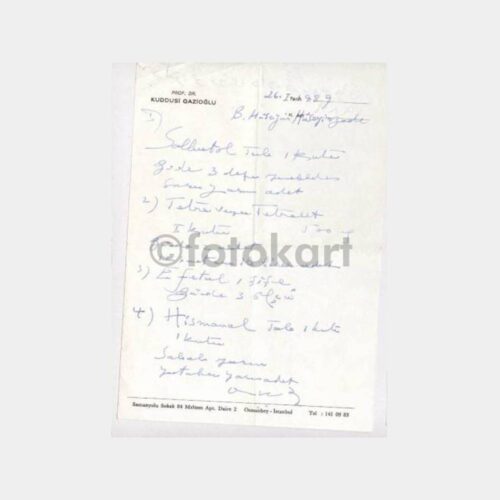 PROF. DR.
KUDDUSİ GAZİOĞLU
26. I 1989
B. Hüseyin Hüseyinzade
1)
Salbutol Tale 1 kutu
Günde 3 defa yemekten
sonra yarım adet
2) Tetra veya Tetralet
1 kutu 500
©fotokart
3) Efetal 1 şişe
Günde 3 ölçü
4) Hismanal Tale 1 kutu
1 kutu
Sabah yarım
yatarken yarım adet
Samanyolu Sokak 84 Meltem Apt. Daire 2 Osmanbey - İstanbul Tel : 141 09 83